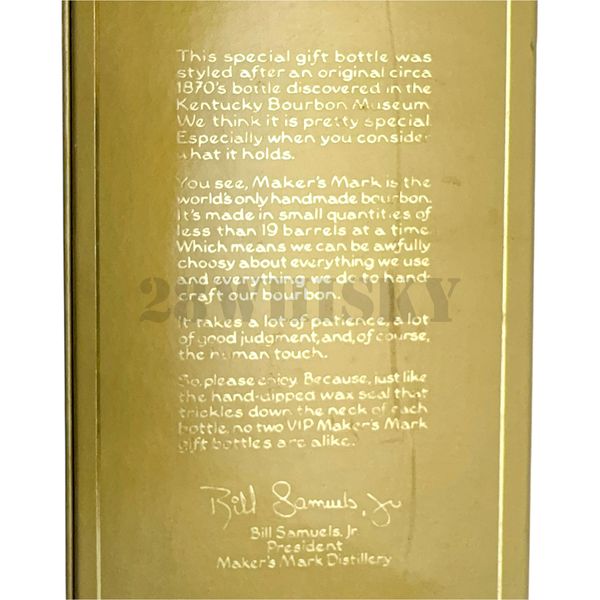 This special gift bottle was
styled after an original circa
1870's bottle discovered in the
Kentucky Bourbon Museum.
We think it is pretty special.
Especially when you consider
what it holds.
You see, Maker's Mark is the
world's only handmade bourbon.
It's made in small quantities of
less than 19 barrels at a time.
Which means we can be awfully
choosy about everything we use
and everything we do to hand-
craft our bourbon.
It takes a lot of patience, a lot
of good judgment, and, of course,
the human touch.
So, please enjoy. Because, just like
the hand-dipped wax seal that
trickles down the neck of each
bottle, no two VIP Maker's Mark
gift bottles are alike.
Bill Samuels, Jr
Bill Samuels, Jr
President
Maker's Mark Distillery